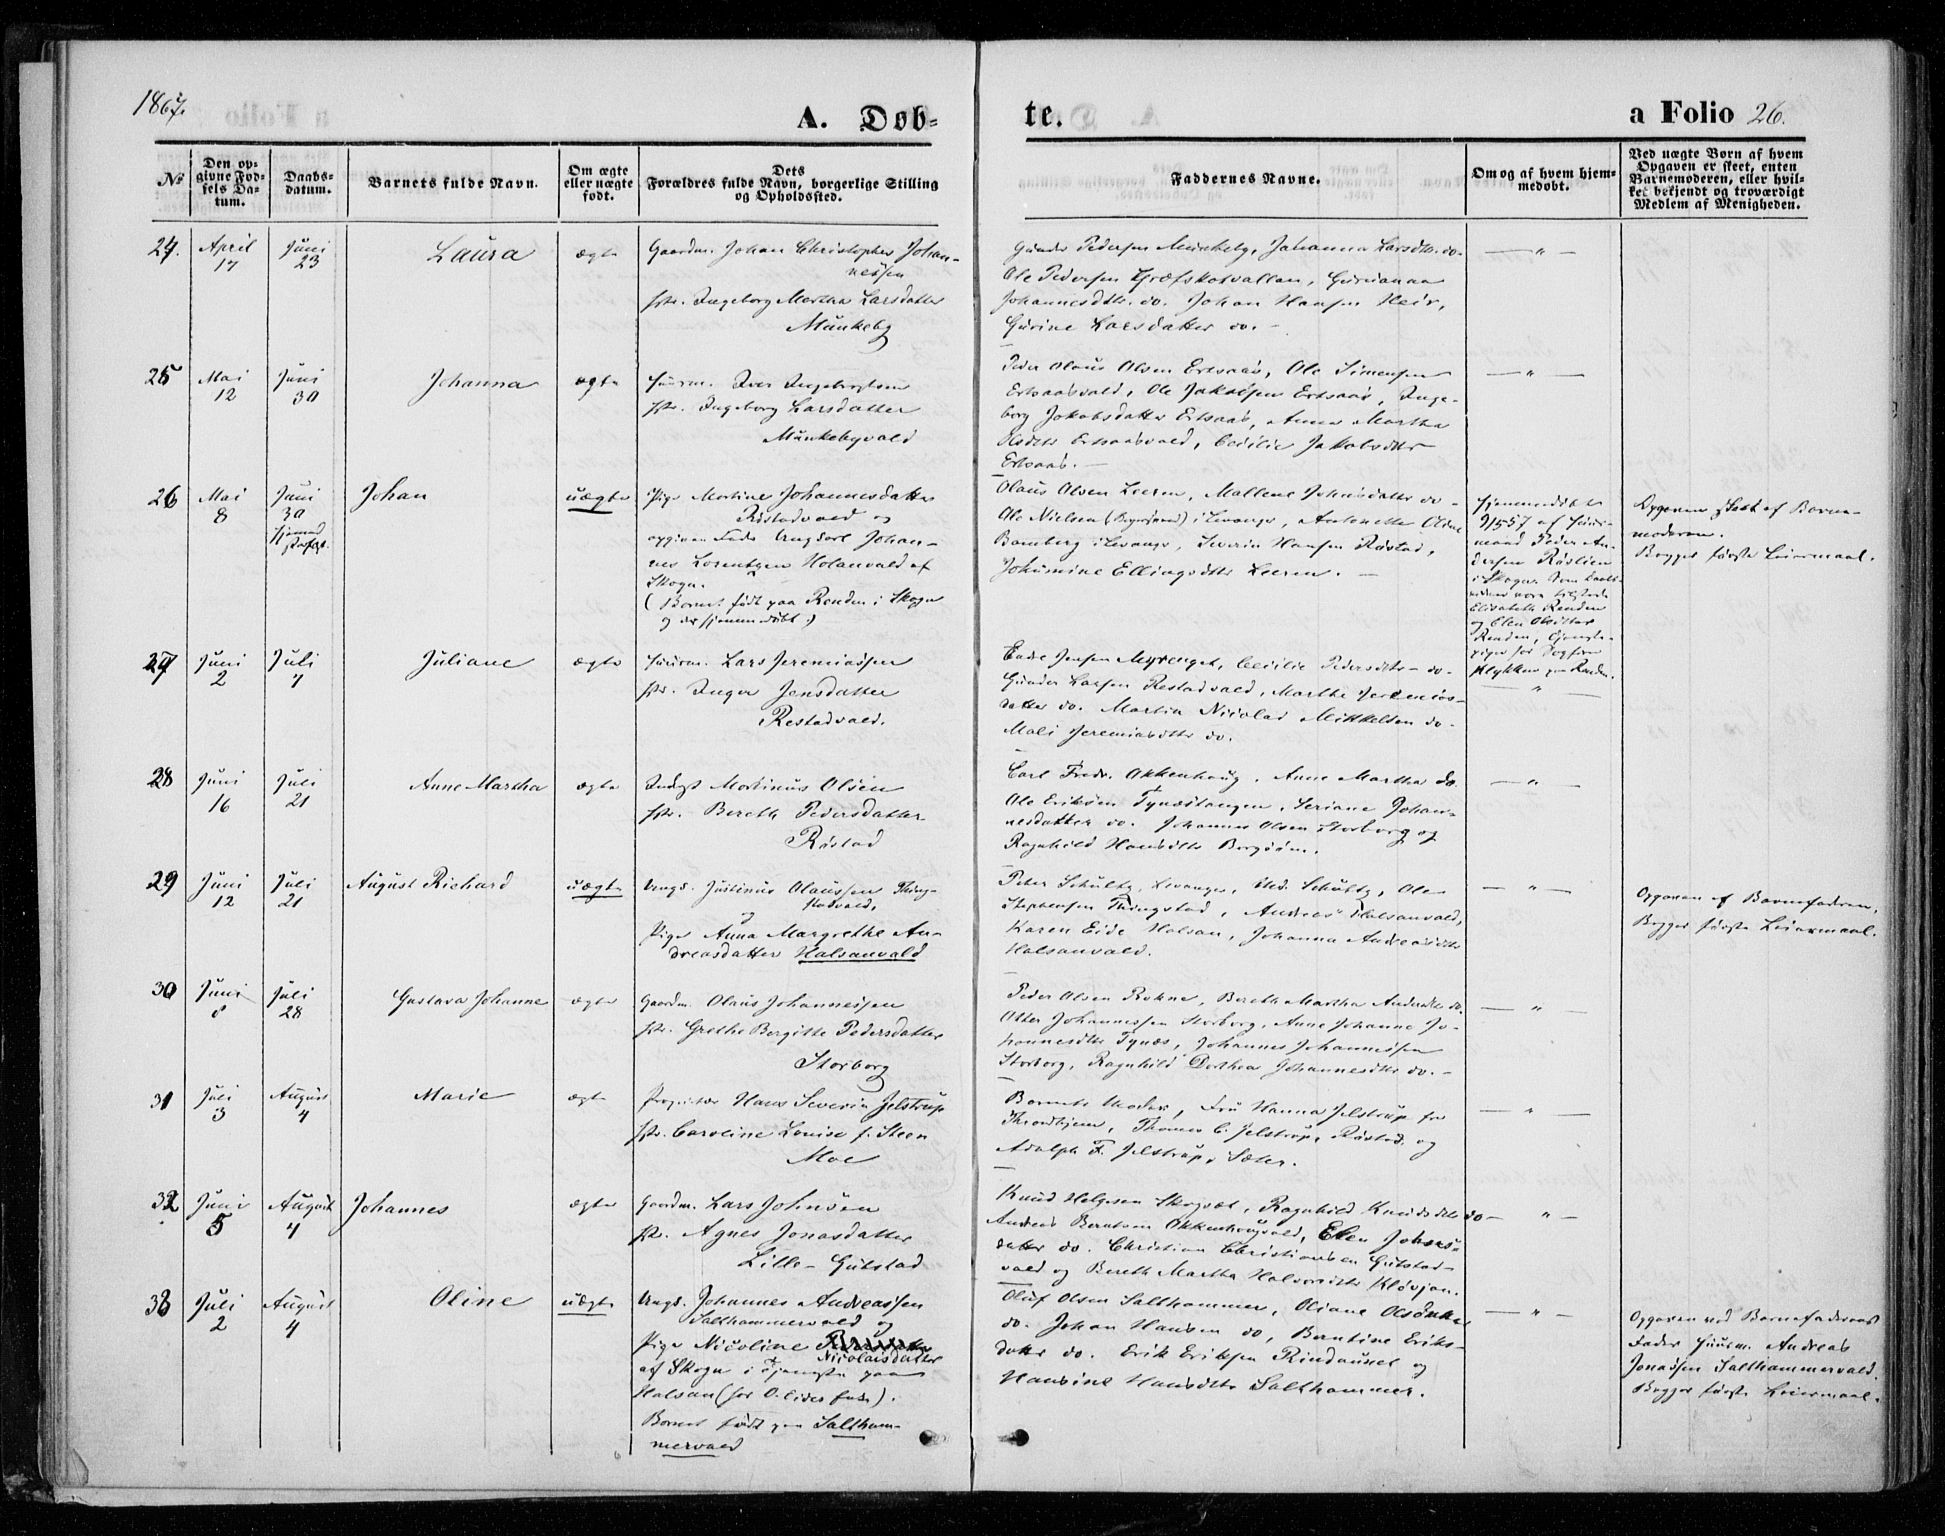 1867.
A. Døb-
te.
a Folio 26.
No
Den op-
givne Fød-
sels Da-
tum.
Daabs-
datum.
Barnets fulde Navn.
Om ægte
eller uægte
født.
Dets
Forældres fulde Navn, borgerlige Stilling
og Opholdssted.
Faddernes Navne.
Om og af hvem hjem-
medøbt.
Ved uægte Børn af hvem
Opgaven er skeet, enten
Barnemoderen, eller hvil-
ket bekjendt og troværdigt
Medlem af Menigheden.
24.
April
17
Juni
23
Laura
ægte
Gaardm. Johan Christopher Johan-
nessen
Ingeborg Martha Larsdatter
Munkeby
Gunder Pedersen Munkeby, Johanna Larsdtr. do.
Ole Pedersen Græfskotvallen,
Johannesdtr. do. Johan Hansen
Gurine Larsdatter do. -
— " —
25
Mai
12
Juni
30
Johanna
ægte
Huusm. Iver Ingebrigtsen
Ingeborg Larsdatter
Munkebyvald
Peder Olaus Olsen Ertsaas, Ole Simensen
Ertsaasvald, Ole Jakobsen Ertsaas, Inge-
borg Jakobsdatter Ertsaas, Anna Martha
Olsdtr Ertsaasvald, Cecilie Jakobsdtr
Ertsaas. -
— " —
26
Mai
8
Juni
30
Johan
uægte
Pige Martine Johannesdatter
Røstadvald og
opgiven Fader Ungkarl Johan-
nes Lorentzen Holanvald af
Skogn.
(Barnet født paa Renden i Skogn
og der hjemmedøbt.)
Olaus Olsen Leeren, Mallene Johnsdatter do -
Ole Nielsen i Levanger, Antonette
Bamberg i Levanger, Severin Hansen Røstad,
Ellingsdtr Leeren. -
Hjemmedøbt
af Huus-
mand Peder An-
dersen Røslien
i Skogn. Som Daabs-
vidner vare tilstede
Elisabeth Renden
og Elen Olsdatter
Renden,
Opgaven skeet af Barne-
moderen.
Begges første Leiermaal.
27
Juni
2
Juli
7
Juliane
ægte
Huusm. Lars Jeremiassen
Inger Jensdatter
Restadvald.
Jensen Myrenget, Cecilie Pedersdtr do.
Gunder Larsen Restadvald, Marthe Jeremias-
datter do. Martin Nicolai Mikkelsen do.
Mali Jeremiasdtr do.
— " —
28
Juni
16
Juli
21
Anne Martha
ægte
Martinus Olsen
Bereth Pedersdatter
Røstad
Carl Fredr. Okkenhaug, Anne Martha do.
Ole Eriksen Tynæstangen, Seriane Johan-
nesdatter do. Johannes Olsen Storborg og
Ragnhild Hansdtr
— " —
29
Juni
12
Juli
21
August Richard
uægte
Ungk. Justinus Olaussen Thing-
stadvald,
og
Pige Anna Margrethe An-
dreasdatter Halsanvald
Peter Schultz, Levanger, Schultz, Ole
Stephensen Thingstad, Andreas Halsanvald,
Karen Eide Halsan, Johanna Andreasdtr
Halsanvald.
— " —
Opgaven af Barnefaderen,
Begges første Leiermaal.
30
Juni
8
Juli
28
Gustava Johanne
ægte
Gaardm. Olaus Johannessen
Grethe Bergitte Pedersdatter
Storborg
Peder Olsen Rohne, Bereth Martha Andersdtr do.
Otter Johannessen Storborg, Anne Johanne Jo-
hannesdtr Tynæs, Johannes Johannessen
Storborg, Ragnhild Dorthea Johannesdtr do. -
— " —
31
Juli
3
August
4
Marie
ægte
Proprietær Hans Severin Jelstrup
Caroline Louise f. Steen
Moe
Barnets Moder, Fru Hanna Jelstrup fra
Throndhjem, Thomas C. Jelstrup, Røstad og
Adolph F. Jelstrup, Sæter.
— " —
32
Juni
5
August
4
Johannes
ægte
Gaardm. Lars Johnsen
Agnes Jonasdatter
Lille-Gubstad
Knud Helgesen Ragnhild Knudsdtr do
Andreas Berntsen Okkenhaugvald, Elen Johns-
datter do. Christian Christiansen Gubstad-
vald og Bereth Martha Halvorsdtr Kløvjan.
— " —
33
Juli
2
August
4
Oline
uægte
Ungk. Johannes Andreassen
Salthammervald og
Pige Nicoline
Nicolaisdatter
af Skogn i Tjeneste paa
Halsan
Barnet født paa Saltham-
mervald
Oluf Olsen Salthammer, Oliane
do. Johan Hansen do, Berntine Eriks-
datter do. Erik Eriksen Rindaunet og
Hansine Hansdtr Salthammer.
— " —
Opgaven ved Barnefaderens
Fader Huusm. Andreas
Jonassen Salthammervald.
Begges første Leiermaal.